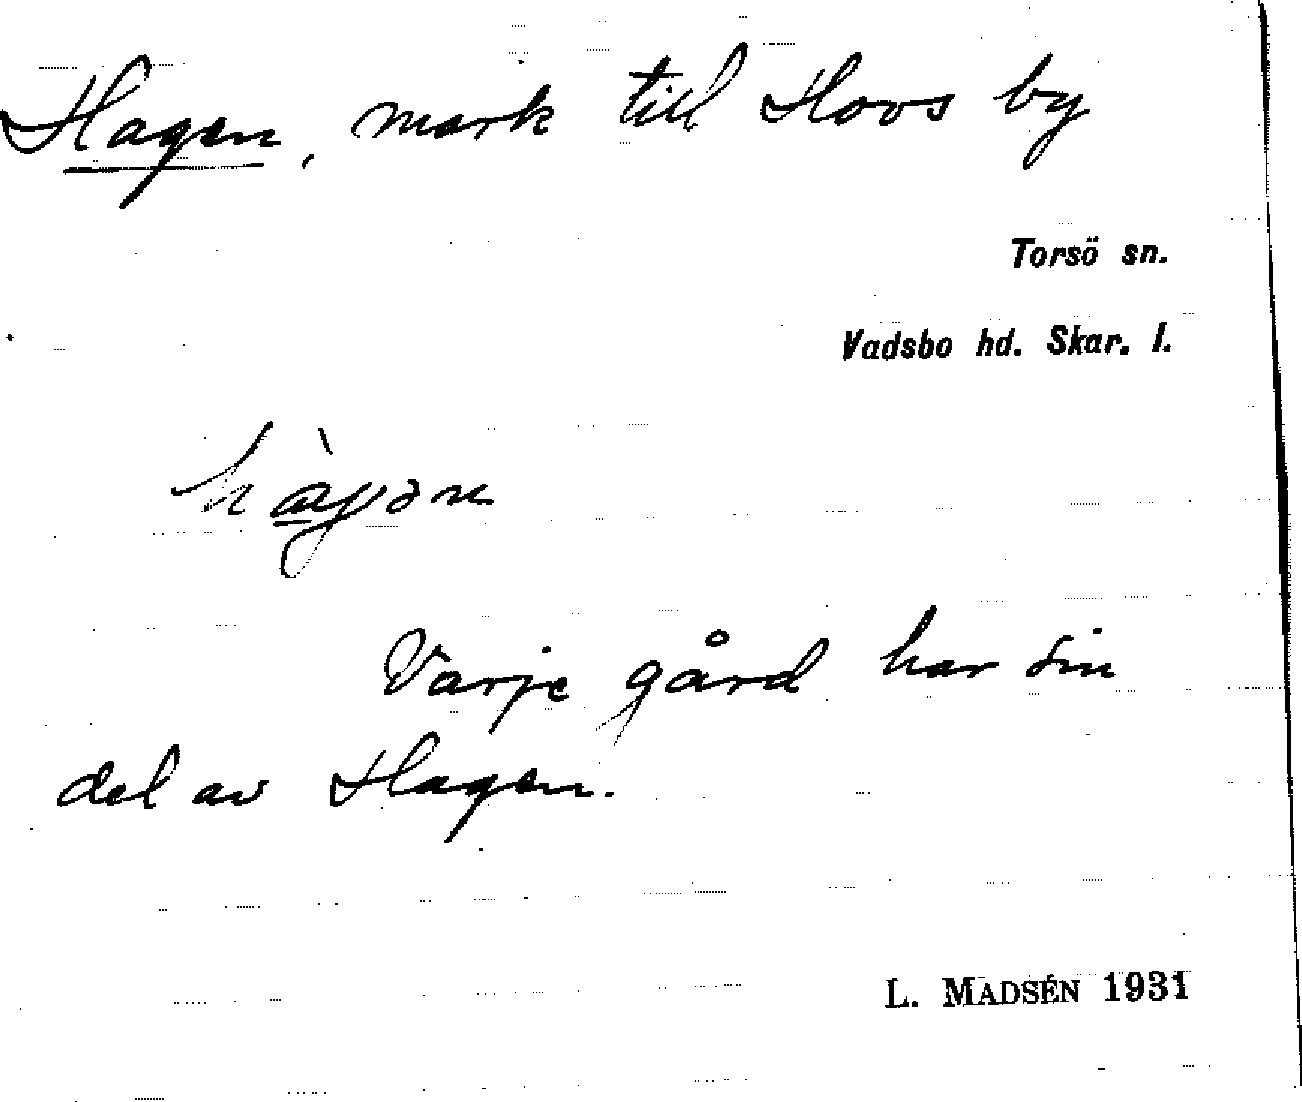 Hagen, mark till Hovs by
Torsö sn.
Vadsbo hd. Skar. l.
hàgǝn
Varje gård har sin
del av Hagen.
L. MADSÉN 1931